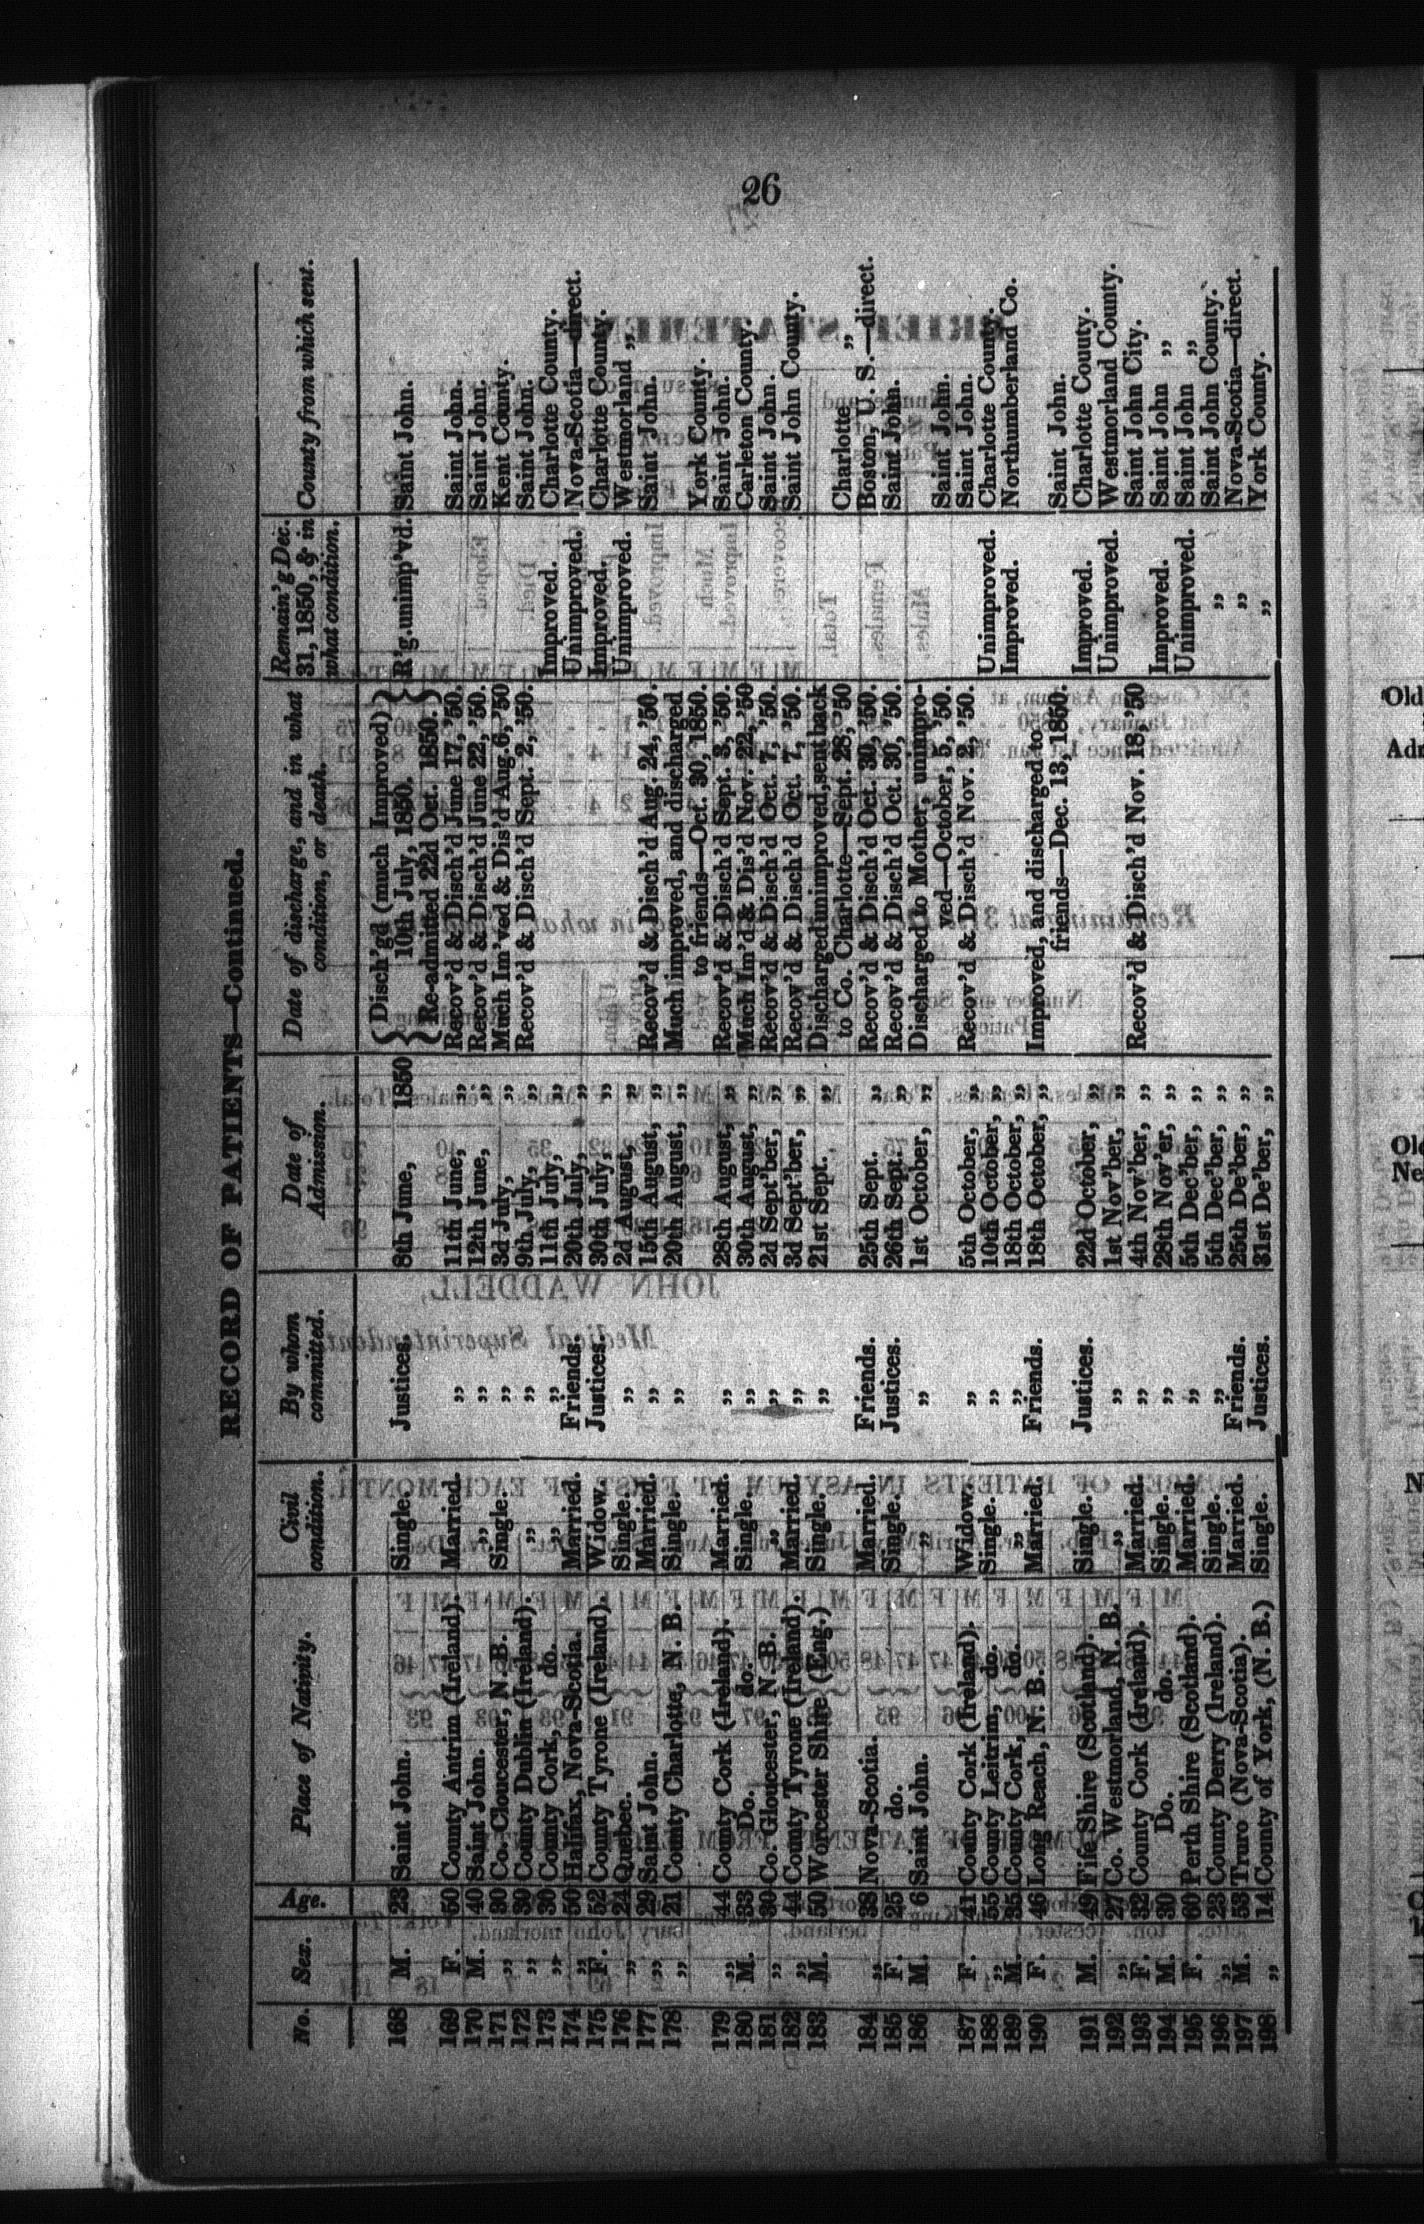 26
RECORD OF PATIENTS—Continued.
No. Sex. Age. Place of Nativity. Civil condition. By whom committed. Date of Admission. Date of discharge, and in what condition, or death. Remain'g Dec. 31, 1850, & in what condition. County from which sent.
168 M. 23 Saint John. Single. Justices. 8th June, 1850 { Disch'gd (much Improved) } R'g.unimp'vd. Saint John.
10th July, 1850.
{ Re-admitted 22d Oct. 1850. }
169 F. 50 County Antrim (Ireland). Married. „ 11th June, „ Recov'd & Disch'd June 17, '50. Saint John.
170 M. 40 Saint John. „ „ 12th June, „ Recov'd & Disch'd June 22, '50. Saint John.
171 „ 30 Co. Gloucester, N. B. Single. „ 3d July, „ Much Im'ved & Dis'd Aug. 6, '50 Kent County.
172 „ 39 County Dublin (Ireland). „ „ 9th July, „ Recov'd & Disch'd Sept. 2, '50. Saint John.
173 „ 30 County Cork, do. „ „ 11th July, „ Improved. Charlotte County.
174 „ 50 Halifax, Nova-Scotia. Married. Friends. 20th July, „ Unimproved. Nova-Scotia—direct.
175 F. 52 County Tyrone (Ireland) Widow. Justices. 30th July, „ Improved. Charlotte County.
176 „ 24 Quebec. Single. „ 2d August, „ Unimproved. Westmorland „
177 „ 29 Saint John. Married. „ 15th August, „ Recov'd & Disch'd Aug. 24, '50. Saint John.
178 „ 21 County Charlotte, N. B. Single. „ 20th August, „ Much improved, and discharged
to friends—Oct. 30, 1850. York County.
179 „ 44 County Cork (Ireland). Married. „ 28th August, „ Recov'd & Disch'd Sept. 3, '50. Saint John.
180 M. 33 Do. do. Single. „ 30th August, „ Much Im'd & Dis'd Nov. 22, '50 Carleton County.
181 „ 30 Co. Gloucester, N. B. „ „ 2d Sept'ber, „ Recov'd & Disch'd Oct. 7, '50. Saint John.
182 „ 44 County Tyrone (Ireland). Married. „ 3d Sept'ber, „ Recov'd & Disch'd Oct. 7, '50. Saint John County.
183 M. 50 Worcester Shire (Eng.) Single. „ 21st Sept. „ Discharged unimproved, sent back
to Co. Charlotte—Sept. 28, '50 Charlotte „
184 „ 38 Nova-Scotia. Married. Friends. 25th Sept. „ Recov'd & Disch'd Oct. 30, '50. Boston, U. S.—direct.
185 F. 25 do. Single. Justices. 26th Sept. „ Recov'd & Disch'd Oct. 30, '50. Saint John.
186 M. 6 Saint John. „ „ 1st October, „ Discharged to Mother, unimpro-
ved—October, 5, '50. Saint John.
187 F. 41 County Cork (Ireland). Widow. „ 5th October, „ Recov'd & Disch'd Nov. 2, '50. Saint John.
188 „ 55 County Leitrim, do. Single. „ 10th October, „ Unimproved. Charlotte County.
189 M. 35 County Cork, do. „ „ 18th October, „ Improved. Northumberland Co.
190 F. 46 Long Reach, N. B. Married. Friends. 18th October, „ Improved, and discharged to
friends—Dec. 13, 1850. Saint John.
191 M. 49 Fife Shire (Scotland). Single. Justices. 22d October, „ Improved. Charlotte County.
192 „ 27 Co. Westmorland, N. B. „ „ 1st Nov'ber, „ Unimproved. Westmorland County.
193 F. 32 County Cork (Ireland). Married. „ 4th Nov'ber, „ Recov'd & Disch'd Nov. 18, '50 Saint John City.
194 M. 30 Do. do. Single. „ 28th Nov'er, „ Improved. Saint John „
195 F. 60 Perth Shire (Scotland). Married. „ 5th Dec'ber, „ Unimproved. Saint John „
196 „ 23 County Derry (Ireland). Single. „ 5th Dec'ber, „ „ Saint John County.
197 M. 53 Truro (Nova-Scotia). Married. Friends. 25th De'ber, „ „ Nova-Scotia—direct.
198 „ 14 County of York, (N. B.) Single. Justices. 31st De'ber, „ „ York County.